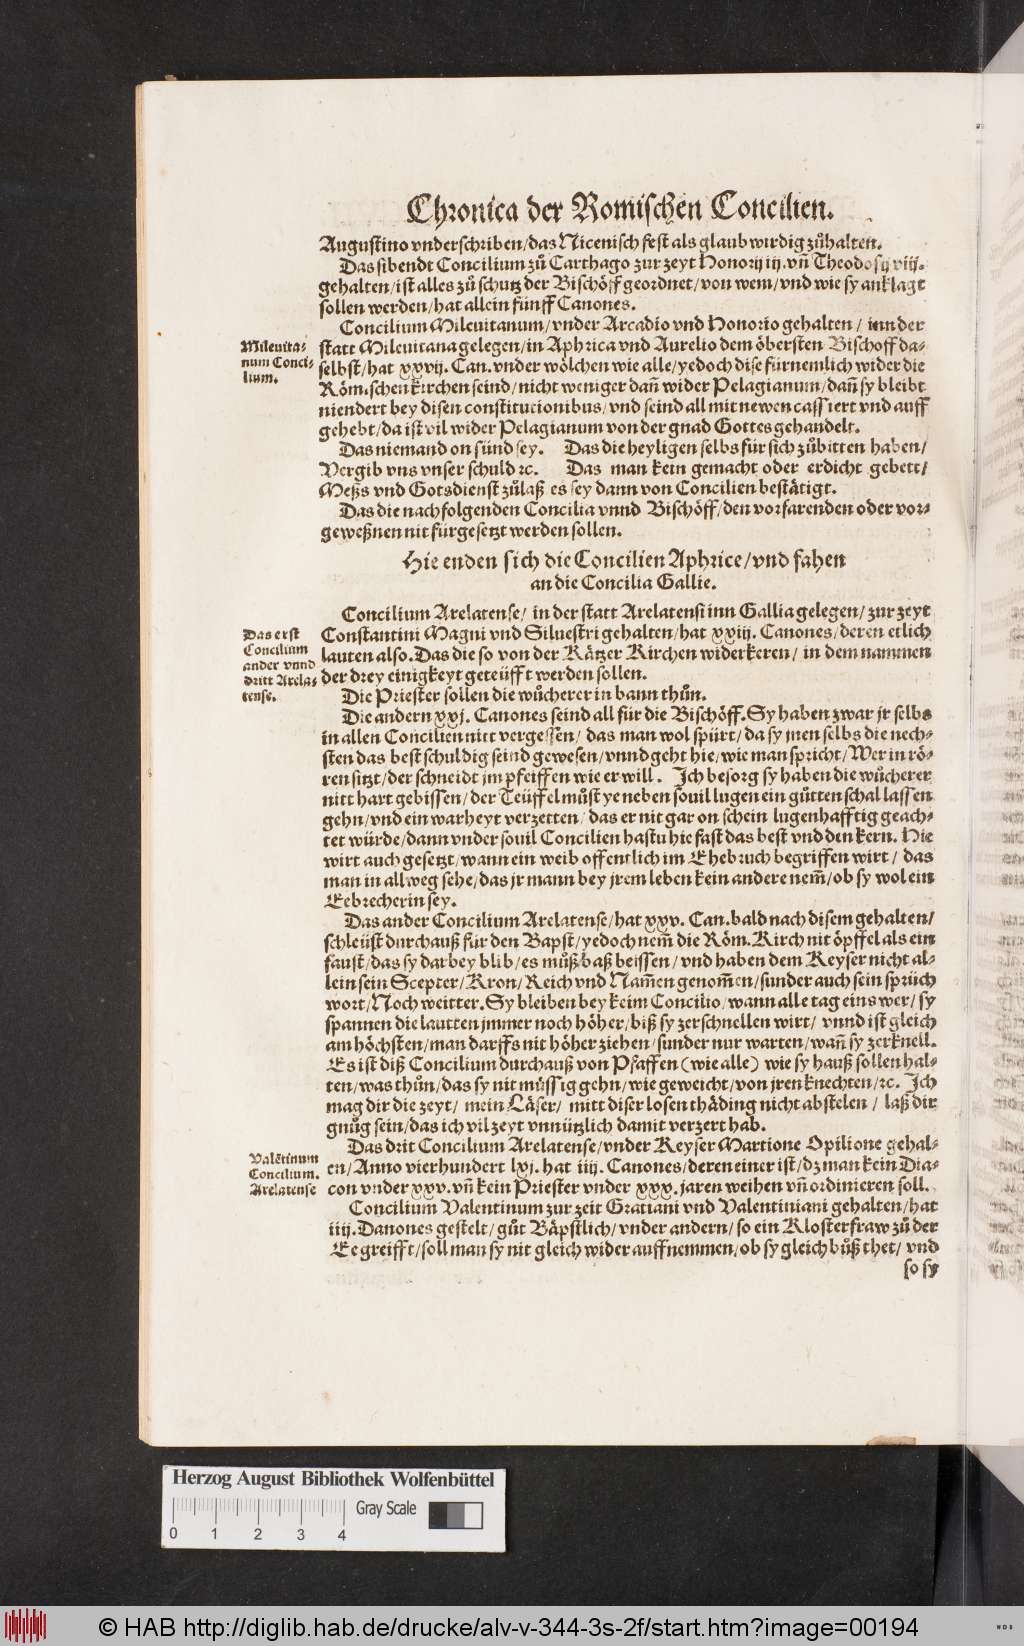 Chronica der Romischen Concilien.
Augustino vnderschriben/das Nicenisch fest als glaubwirdig zůhalten.
Das sibendt Concilium zů Carthago zur zeyt Honorij iij. vñ Theodosij viij.
gehalten/ist alles zů schutz der Bischöff geordnet/von wem/vnd wie sy anklagt
sollen werden/hat allein fünff Canones.
Concilium Mileuitanum/vnder Arcadio vnd Honorio gehalten/ inn der
Mileuita-
num Conci-
lium.
statt Mileuitana gelegen/in Aphrica vnd Aurelio dem öbersten Bischoff da-
selbst/hat xxvij. Can. vnder wölchen wie alle/yedoch dise fürnemlich wider die
Röm.schen kirchen seind/nicht weniger dañ wider Pelagianum/dañ sy bleibt
niendert bey disen constitutionibus/vnd seind all mit newen cassiert vnd auff
gehebt/da ist vil wider Pelagianum von der gnad Gottes gehandelt.
Das niemand on sünd sey. Das die heyligen selbs für sich zůbitten haben/
Vergib vns vnser schuld ꝛc. Das man kein gemacht oder erdicht gebett/
Meßs vnd Gotsdienst zůlaß es sey dann von Concilien bestätigt.
Das die nachfolgenden Concilia vnnd Bischöff/den vorfarenden oder vor-
geweßnen nit fürgesetzt werden sollen.
Hie enden sich die Concilien Aphrice/vnd fahen
an die Concilia Gallie.
Concilium Arelatense/ in der statt Arelatensi inn Gallia gelegen/zur zeyt
Das erst
Concilium
ander vnnd
dritt Arela-
tense.
Constantini Magni vnd Siluestri gehalten/hat xxiij. Canones/deren etlich
lauten also. Das die so von der Kätzer Kirchen widerkeren/ in dem nammen
der drey einigkeyt geteüfft werden sollen.
Die Priester sollen die wůcherer in bann thůn.
Die andern xxj. Canones seind all für die Bischöff. Sy haben zwar jr selbs
in allen Concilien nitt vergessen/ das man wol spürt/da sy jnen selbs die nech-
sten das best schuldig seind gewesen/vnnd geht hie/wie man spricht/Wer in rö-
ren sitzt/der schneidt jm pfeiffen wie er will. Ich besorg sy haben die wůcherer
nitt hart gebissen/der Teüffel můst ye neben souil lugen ein gůtten schal lassen
gehn/vnd ein warheyt verzetten/ das er nit gar on schein lugenhafftig geach-
tet würde/dann vnder souil Concilien hastu hie fast das best vnd den kern. Hie
wirt auch gesetzt/wann ein weib offentlich im Ehebruch begriffen wirt/ das
man in allweg sehe/das jr mann bey jrem leben kein andere nem̃/ob sy wol ein
Eebrecherin sey.
Das ander Concilium Arelatense/hat xxv. Can. bald nach disem gehalten/
schleüst durchauß für den Bapst/yedoch nem̃ die Röm. Kirch nit öpffel als ein
faust/das sy darbey blib/es můß baß beissen/ vnd haben dem Keyser nicht al-
lein sein Scepter/Kron/Reich vnd Nam̃en genom̃en/sunder auch sein sprüch
wort/Noch weitter. Sy bleiben bey keim Concilio/wann alle tag eins wer/ sy
spannen die lautten jmmer noch höher/biß sy zerschnellen wirt/ vnnd ist gleich
am höchsten/man darffs nit höher ziehen/sunder nur warten/wañ sy zerknell.
Es ist diß Concilium durchauß von Pfaffen (wie alle) wie sy hauß sollen hal-
ten/was thůn/das sy nit müssig gehn/wie geweicht/von jren knechten/ꝛc. Ich
mag dir die zeyt/ mein Läser/ mitt diser losen thäding nicht abstelen/ laß dir
gnůg sein/das ich vil zeyt vnnützlich damit verzert hab.
Das drit Concilium Arelatense/vnder Keyser Martione Opilione gehal-
Valẽtinum
Concilium.
Arelatense
en/Anno vierhundert lvj. hat iiij. Canones/deren einer ist/dz man kein Dia-
con vnder xxv. vñ kein Priester vnder xxx. jaren weihen vñ ordinieren soll.
Concilium Valentinum zur zeit Gratiani vnd Valentiniani gehalten/hat
iiij. Danones gestelt/gůt Bäpstlich/vnder andern/so ein Klosterfraw zů der
Ee greifft/soll man sy nit gleich wider auffnemmen/ob sy gleich bůß thet/ vnd
so sy
Herzog August Bibliothek Wolfenbüttel
0 1 2 3 4 Gray Scale
© HAB http://diglib.hab.de/drucke/alv-v-344-3s-2f/start.htm?image=00194